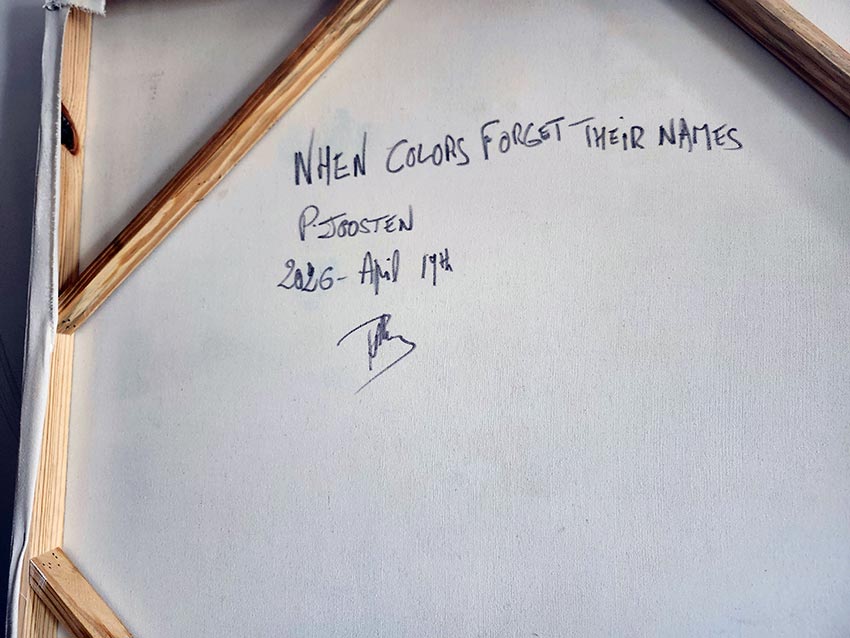 WHEN COLORS FORGET THEIR NAMES
P. JOOSTEN
2026 - April 19th